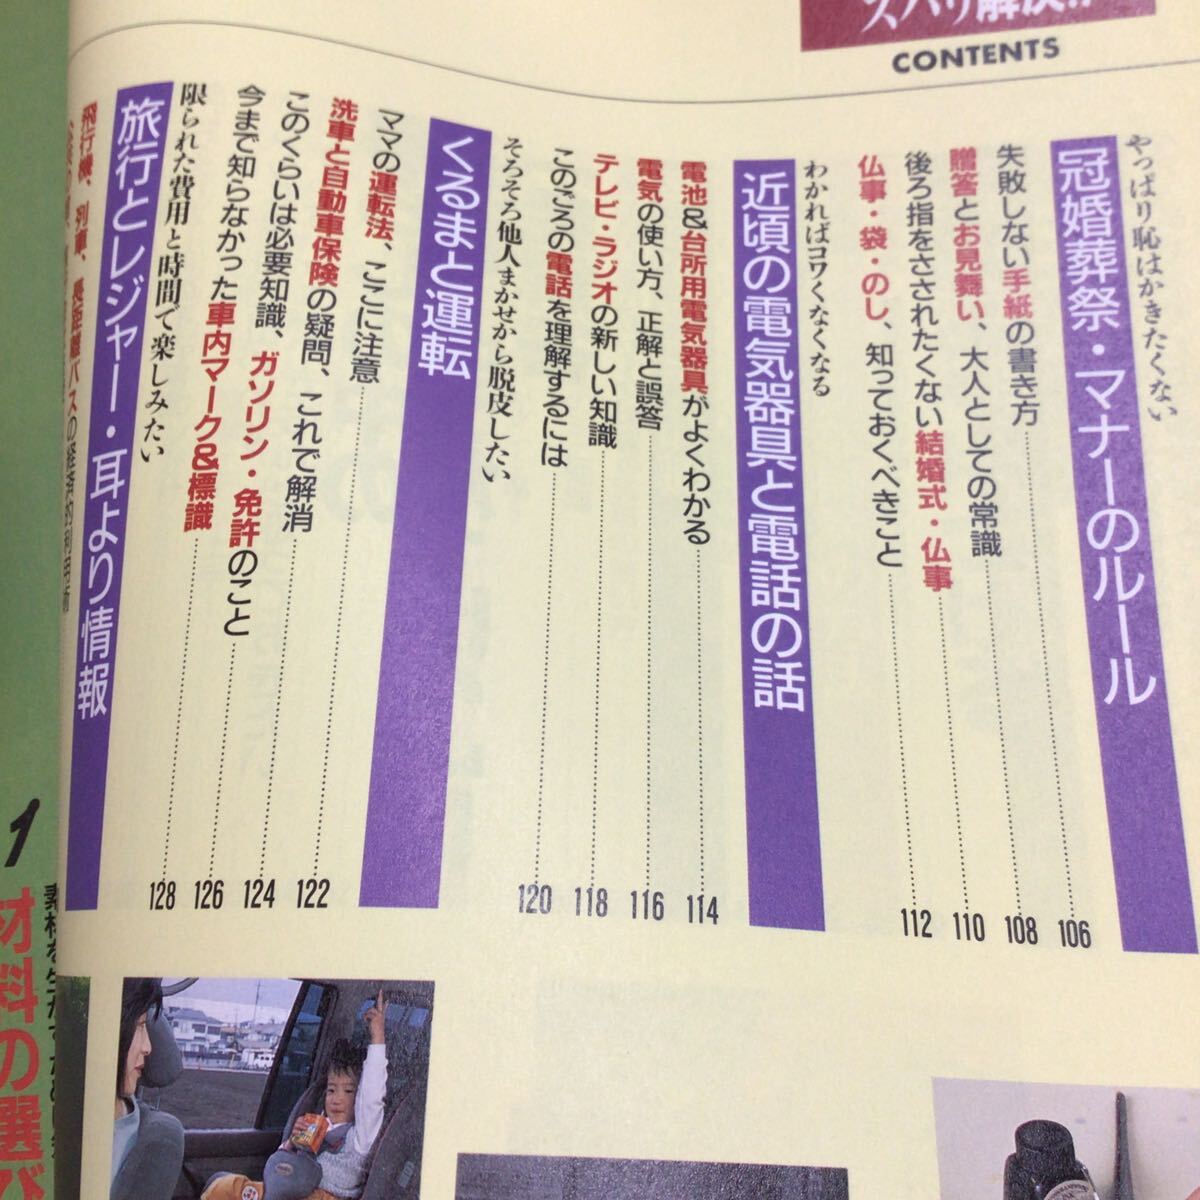 CONTENTS
やっぱり恥はかきたくない
冠婚葬祭・マナーのルール
失敗しない手紙の書き方 106
贈答とお見舞い、大人としての常識 108
後ろ指をさされたくない結婚式・仏事 110
仏事・袋・のし、知っておくべきこと 112
わかればコワくなくなる
近頃の電気器具と電話の話
電池&台所用電気器具がよくわかる 114
電気の使い方、正解と誤答 116
テレビ・ラジオの新しい知識 118
このごろの電話を理解するには 120
そろそろ他人まかせから脱皮したい
くるまと運転
ママの運転法、ここに注意 122
洗車と自動車保険の疑問、これで解消 124
このくらいは必要知識、ガソリン・免許のこと 126
今まで知らなかった車内マーク&標識 128
限られた費用と時間で楽しみたい
旅行とレジャー・耳より情報
飛行機、列車、長距離バスの経済的利用術
1
材料の選び